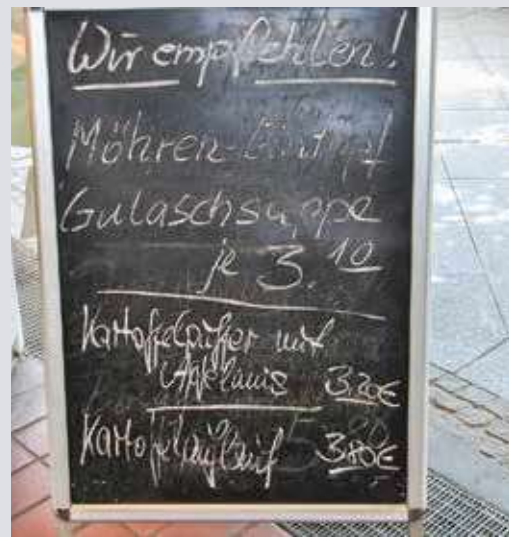 Wir empfehlen!
Möhren-Eintopf
Gulaschsuppe
je 3.10
Kartoffelpuffer mit
Apfelmus 3,20€
Kartoffelauflauf 3,80€